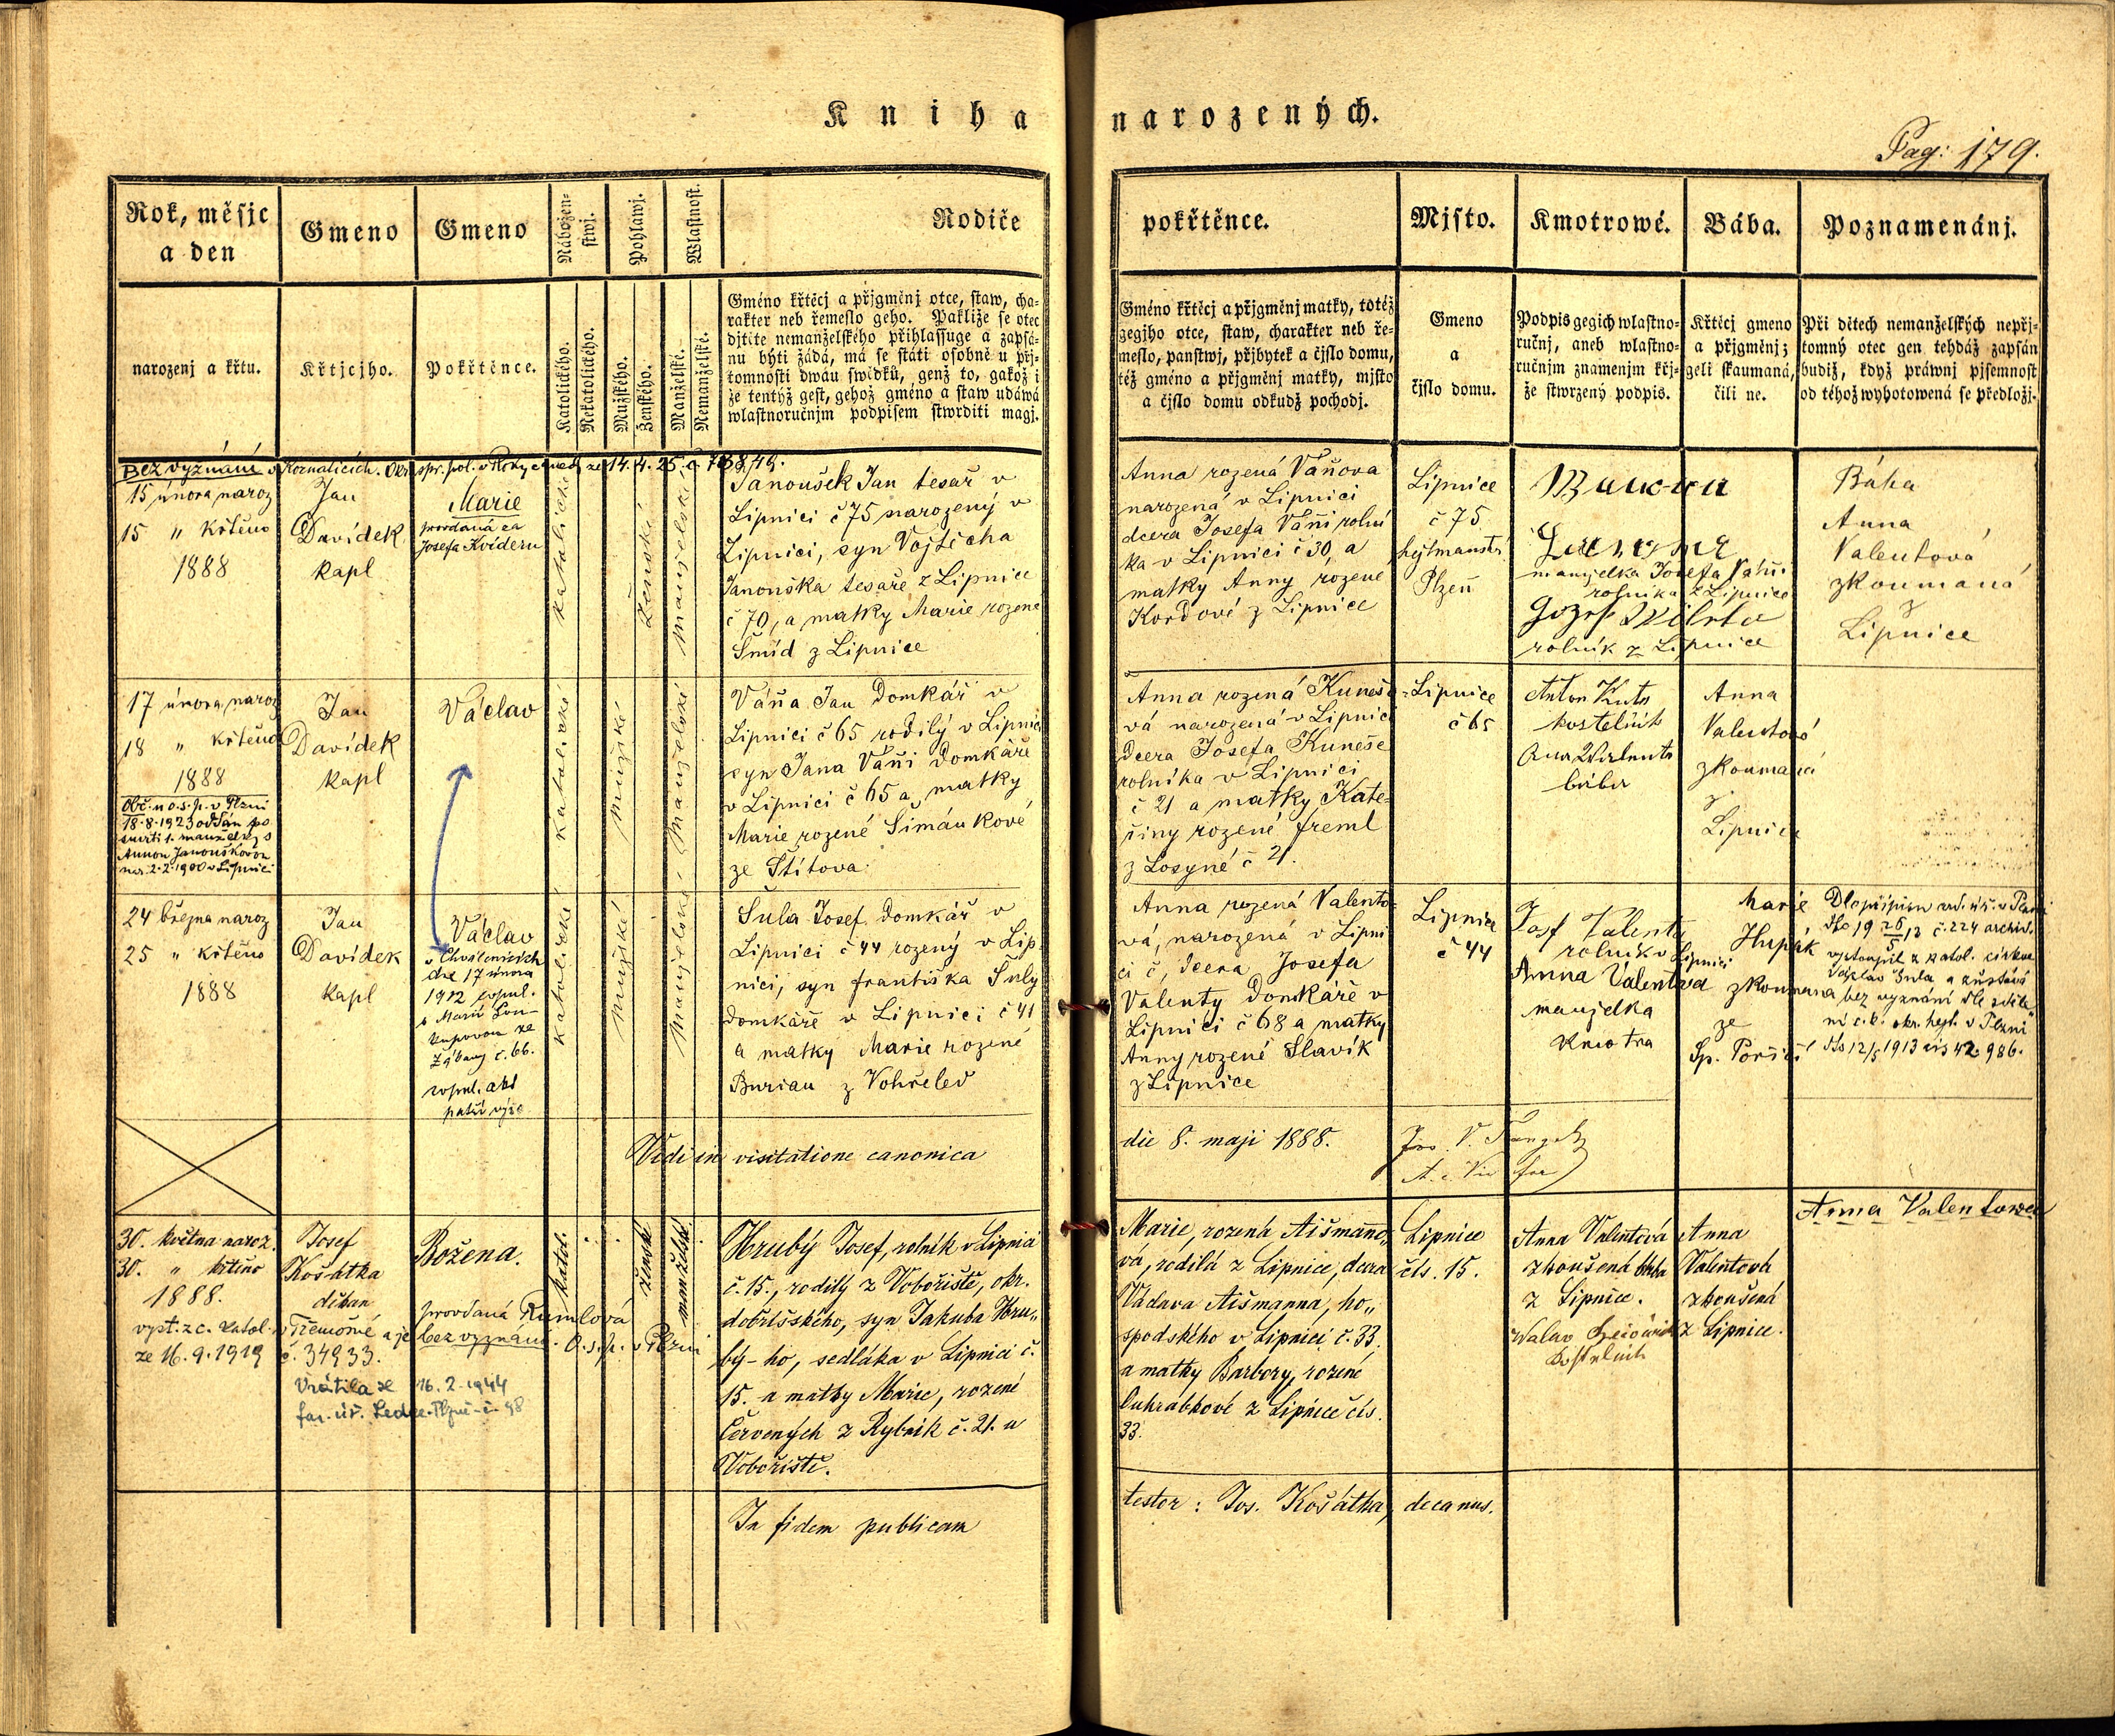 Kniha narozených.
Pag: 179.
Rok, měsjc
a den
Gmeno
Gmeno
Nábožen-
stwj.
Pohlawj.
Wlastnost.
Rodiče
pokřtěnce.
Mjsto.
Kmotrowé.
Bába.
Poznamenánj.
narozenj a křtu.
Křtjcjho.
Pokřtěnce.
Katolického.
Nekatolického.
Mužského.
Ženského.
Manželské.
Nemanželské.
Gméno křtěcj a přjgměnj otce, staw, cha-
rakter neb řemeslo geho. Pakliže se otec
djtěte nemanželského přihlassuge a zapsá-
nu býti žádá, má se státi osobně u přj-
tomnosti dwau swědků, genž to, gakož i
že tentýž gest, gehož gméno a staw udáwá
wlastnoručnjm podpisem stwrditi magj.
Gméno křtěcj a přjgměnj matky, totéž
gegjho otce, staw, charakter neb ře-
meslo, panstwj, přjbytek a čjslo domu,
též gméno a přjgměnj matky, mjsto
a čjslo domu odkudž pochodj.
Gmeno
a
čjslo domu.
Podpis gegich wlastno-
ručnj, aneb wlastno-
ručnjm znamenjm křj-
že stwrzený podpis.
Křtěcj gmeno
a přjgměnj;
geli skaumaná,
čili ne.
Při dětech nemanželských nepřj-
tomný otec gen tehdáž zapsán
budiž, když práwnj pjsemnost
od téhož wyhotowená se předložj.
Bez vyznání v Kornaticích. Okr. spr. pol. v Rokycanech ze 14. 4. 25. č
15 února naroz
15 " křtěno
1888
Jan
Davídek
kapl
Marie
provdaná za
Josefa Kvíderu
katolické
ženské
manželské
Janoušek Jan tesař v
Lipnici č 75 narozený v
Lipnici, syn Vojtěcha
Janouška tesaře z Lipnice
č 70, a matky Marie rozené
Šmíd z Lipnice
Anna rozená Váňova
narozená v Lipnici
dcera Josefa Váni rolní
ka v Lipnici č 30, a
matky Anny rozené
Kordové z Lipnice
Lipnice
č 75
hejtmanství
Plzeň
manželka Josefa Váni
rolníka z Lipnice
rolník z Lipnice
Bába
Anna
Valentová
zkoumaná
z
Lipnice
17 února naroz
18 " křtěno
1888
Obč. u o.s.p. v Plzni
18.8.1923 oddán po
smrti 1. manželky s
Annou Janouškovou
nar. 2.2.1900 v Lipnici
Jan
Davídek
kapl
Václav
katolické
mužské
manželské
Váňa Jan Domkář v
Lipnici č 65 rodilý v Lipnici
syn Jana Váni Domkáře
v Lipnici č 65 a matky
Marie rozené Šimánkové
ze Štítova
Anna rozená Kunešo-
vá narozená v Lipnici
Dcera Josefa Kuneše
rolníka v Lipnici
č 21 a matky Kate-
řiny rozené freml
z Losyné č 21.
Lipnice
č 65
Anton Kuts
kostelník
bába
Anna
Valentová
zkoumaná
z
Lipnice
24 března naroz
25 " křtěno
1888
Jan
Davídek
kapl
Václav
v Chválenicích
dne 17 února
1912 kopul.
s Marií Lou-
kupovou ze
Ždbany č. 66.
kopul. akt
patří výše
katolické
mužské
manželské
Šula Josef Domkář v
Lipnici č 44 rozený v Lip-
nici, syn františka Šuly
domkáře v Lipnici č 41
a matky Marie rozené
Burian z Vohřeled
Anna rozená Valento-
vá, narozená v Lipni
ci č, dcera Josefa
Valenty Domkáře v
Lipnici č 68 a matky
Anny rozené Slavík
z Lipnice
Lipnice
č 44
Josf Valenta
rolník v Lipnici
Anna Valentova
manželka
kmotra
Marie
Hupák
zkoumana
ze
Sp. Poříčí
Dle přípisu ard. úř. v Plzni
dto 19 26/5 13 č. 224 archiv.
vystoupil z katol. církve
Václav Šula a zůstává
bez vyznání dle sděle
ní c.k. okr. hejt. v Plzni
dto 12/5 1913 čís 42986.
Vidi in visitatione canonica die 8. maji 1888.
Anna Valentowa
30. května naroz.
30. " křtěno
1888.
Josef
Košátka
děkan
Božena.
provdaná Rumlová
vyst. z c. katol. v Třemošné a je bez vyznání. O.s.p. v Plzni
ze 16.9.1919 č. 34933.
Vrátila se 16.2.1944
far. úř. Ledce-Plzeň-č. 98
katol.
ženské
manželské
Hrubý Josef, rolník v Lipnici
č. 15., rodilý z Vobořiště, okr.
dobříšského, syn Jakuba Hru„
bý-ho, sedláka v Lipnici č.
15. a matky Marie, rozené
Červených z Rybník č. 21. u
Vobořiště.
Marie, rozená Aišmanno„
vá, rodilá z Lipnice, dcera
Václava Aišmanna, ho„
spodského v Lipnici č. 33.
a matky Barbory, rozené
Outrabkové z Lipnice čís.
33.
Lipnice
čís. 15.
Anna Valentová
zkoušená bába
z Lipnice.
kostelník
Anna
Valentová
zkoušená
z Lipnice.
In fidem publicam testor: Jos. Košátka, decanus.